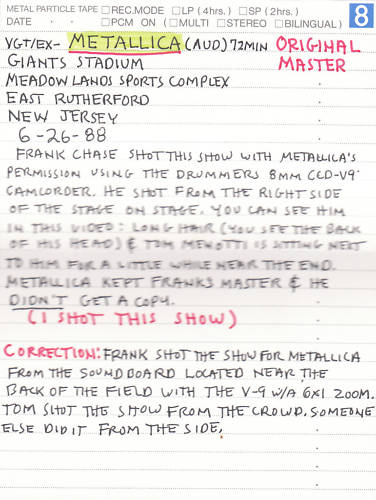 METAL PARTICLE TAPE □REC.MODE □LP (4hrs.) □SP (2hrs.) 8
DATE · · □PCM ON (□MULTI □STEREO □BILINGUAL)
VG+/EX- METALLICA (AUD) 72MIN ORIGINAL
GIANTS STADIUM MASTER
MEADOWLANDS SPORTS COMPLEX
EAST RUTHERFORD
NEW JERSEY
6-26-88
FRANK CHASE SHOT THIS SHOW WITH METALLICA'S
PERMISSION USING THE DRUMMERS 8MM CCD-V9
CAMCORDER. HE SHOT FROM THE RIGHT SIDE
OF THE STAGE ON STAGE. YOU CAN SEE HIM
IN THIS VIDEO: LONG HAIR (YOU SEE THE BACK
OF HIS HEAD) & TOM MENOTTI IS SITTING NEXT
TO HIM FOR A LITTLE WHILE NEAR THE END.
METALLICA KEPT FRANKS MASTER & HE
DIDN'T GET A COPY.
(I SHOT THIS SHOW)
CORRECTION: FRANK SHOT THE SHOW FOR METALLICA
FROM THE SOUNDBOARD LOCATED NEAR THE
BACK OF THE FIELD WITH THE V-9 W/A 6X1 ZOOM.
TOM SHOT THE SHOW FROM THE CROWD. SOMEONE
ELSE DID IT FROM THE SIDE.